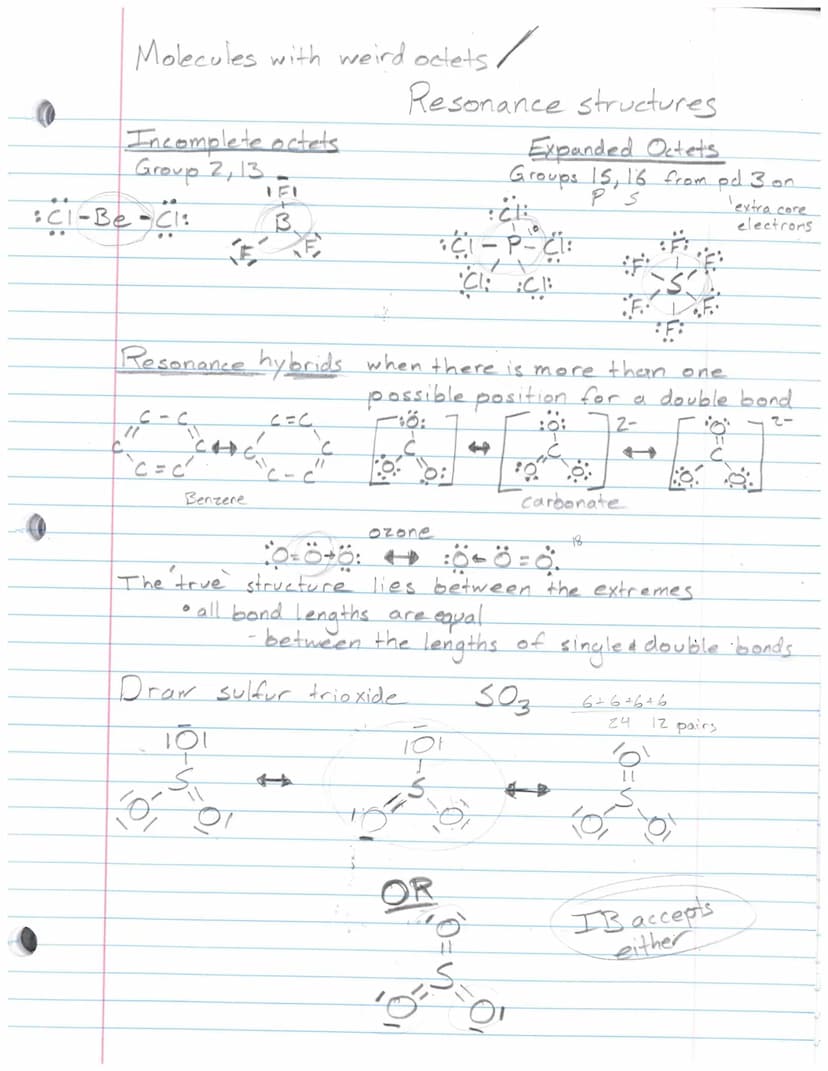 Molecules with weird octets /
Resonance structures
Incomplete octets
Group 2, 13
:Cl-Be-Cl:
F
B
F F
Expanded Octets
Groups 15, 16 from pd 3 on
P S
extra core
electrons
:Cl:
:Cl - P - Cl:
:Cl: :Cl:
:F:
:F: :F:
S
:F: :F:
:F:
Resonance hybrids when there is more than one
possible position for a double bond
C - C
C C
C = C
↔
C = C
C C
C - C
Benzene
[O C O O] ↔ [O C O O] 2- ↔ [O C O O] 2-
carbonate
ozone
:O=O→O: ↔ :O←O=O: 18
The "true" structure lies between the extremes
• all bond lengths are equal
- between the lengths of single & double bonds
Draw sulfur trioxide SO3 6+6+6+6
24 12 pairs
O
S
O O
↔
O
S
O O
↔
O
S
O O
OR
O
S
O O
IB accepts
either